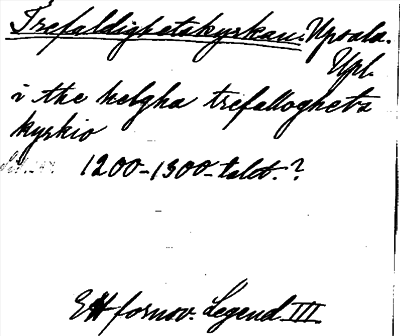 Trefaldighetskyrkan. Upsala.
Upl.
i the helgha trefalloghets
kyrkio
1200-1300-talet.?
Ett fornsv. Legend. III